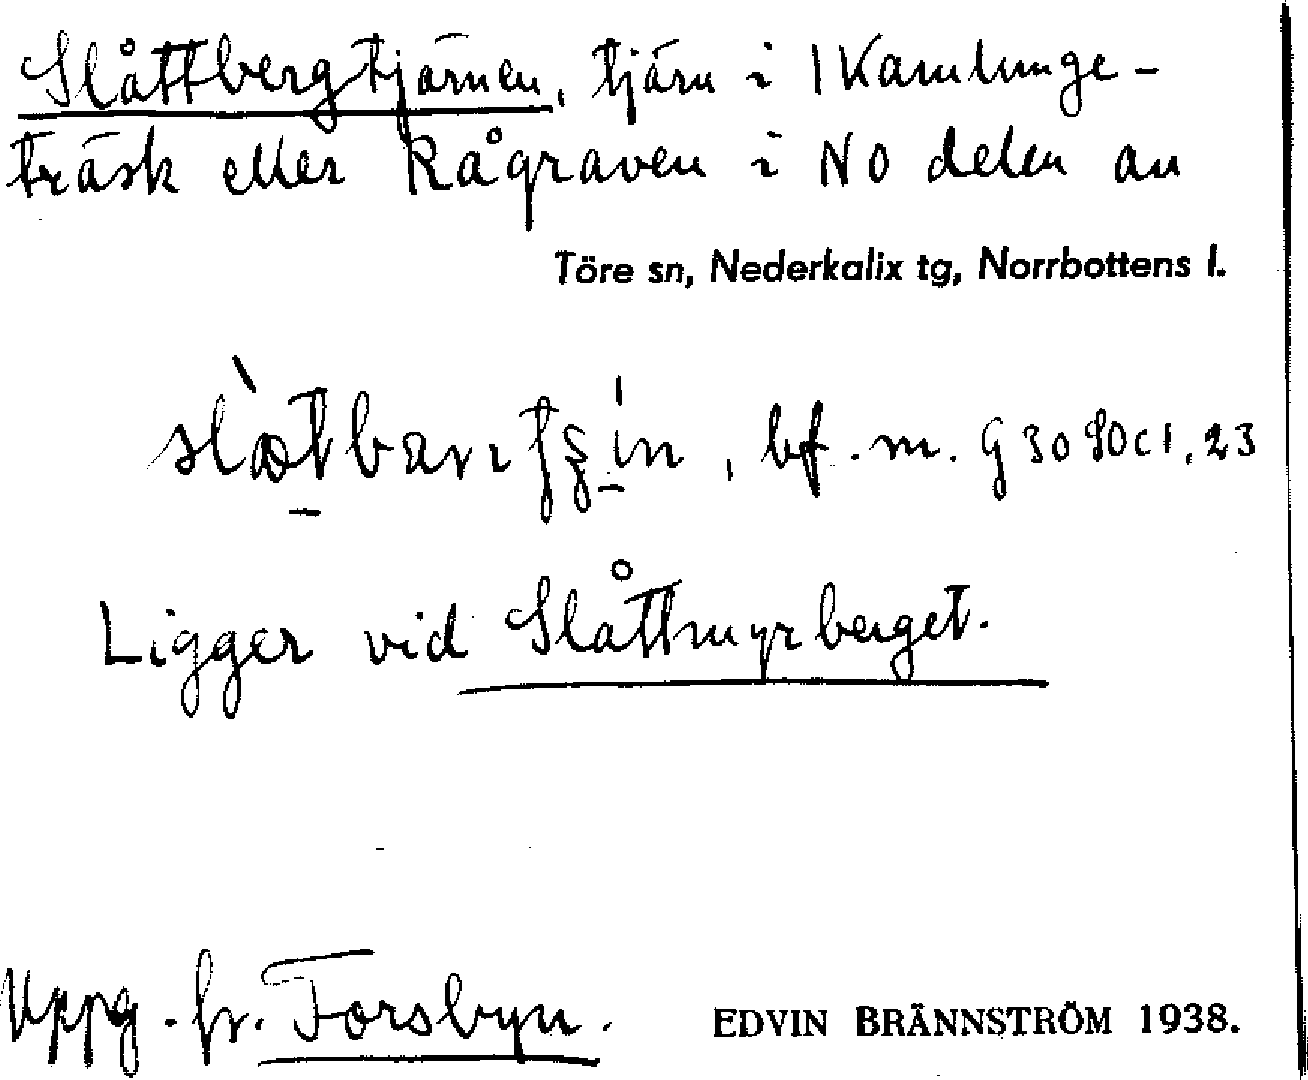 Slåttbergtjärnen, tjärn i Kamlunge-
träsk eller Rågraven i NO delen av
Töre sn, Nederkalix tg, Norrbottens l.
bf. m. G 30
Ligger vid Slåttmyrberget.
Uppg. fr. Forsbyn.
EDVIN BRÄNNSTRÖM 1938.